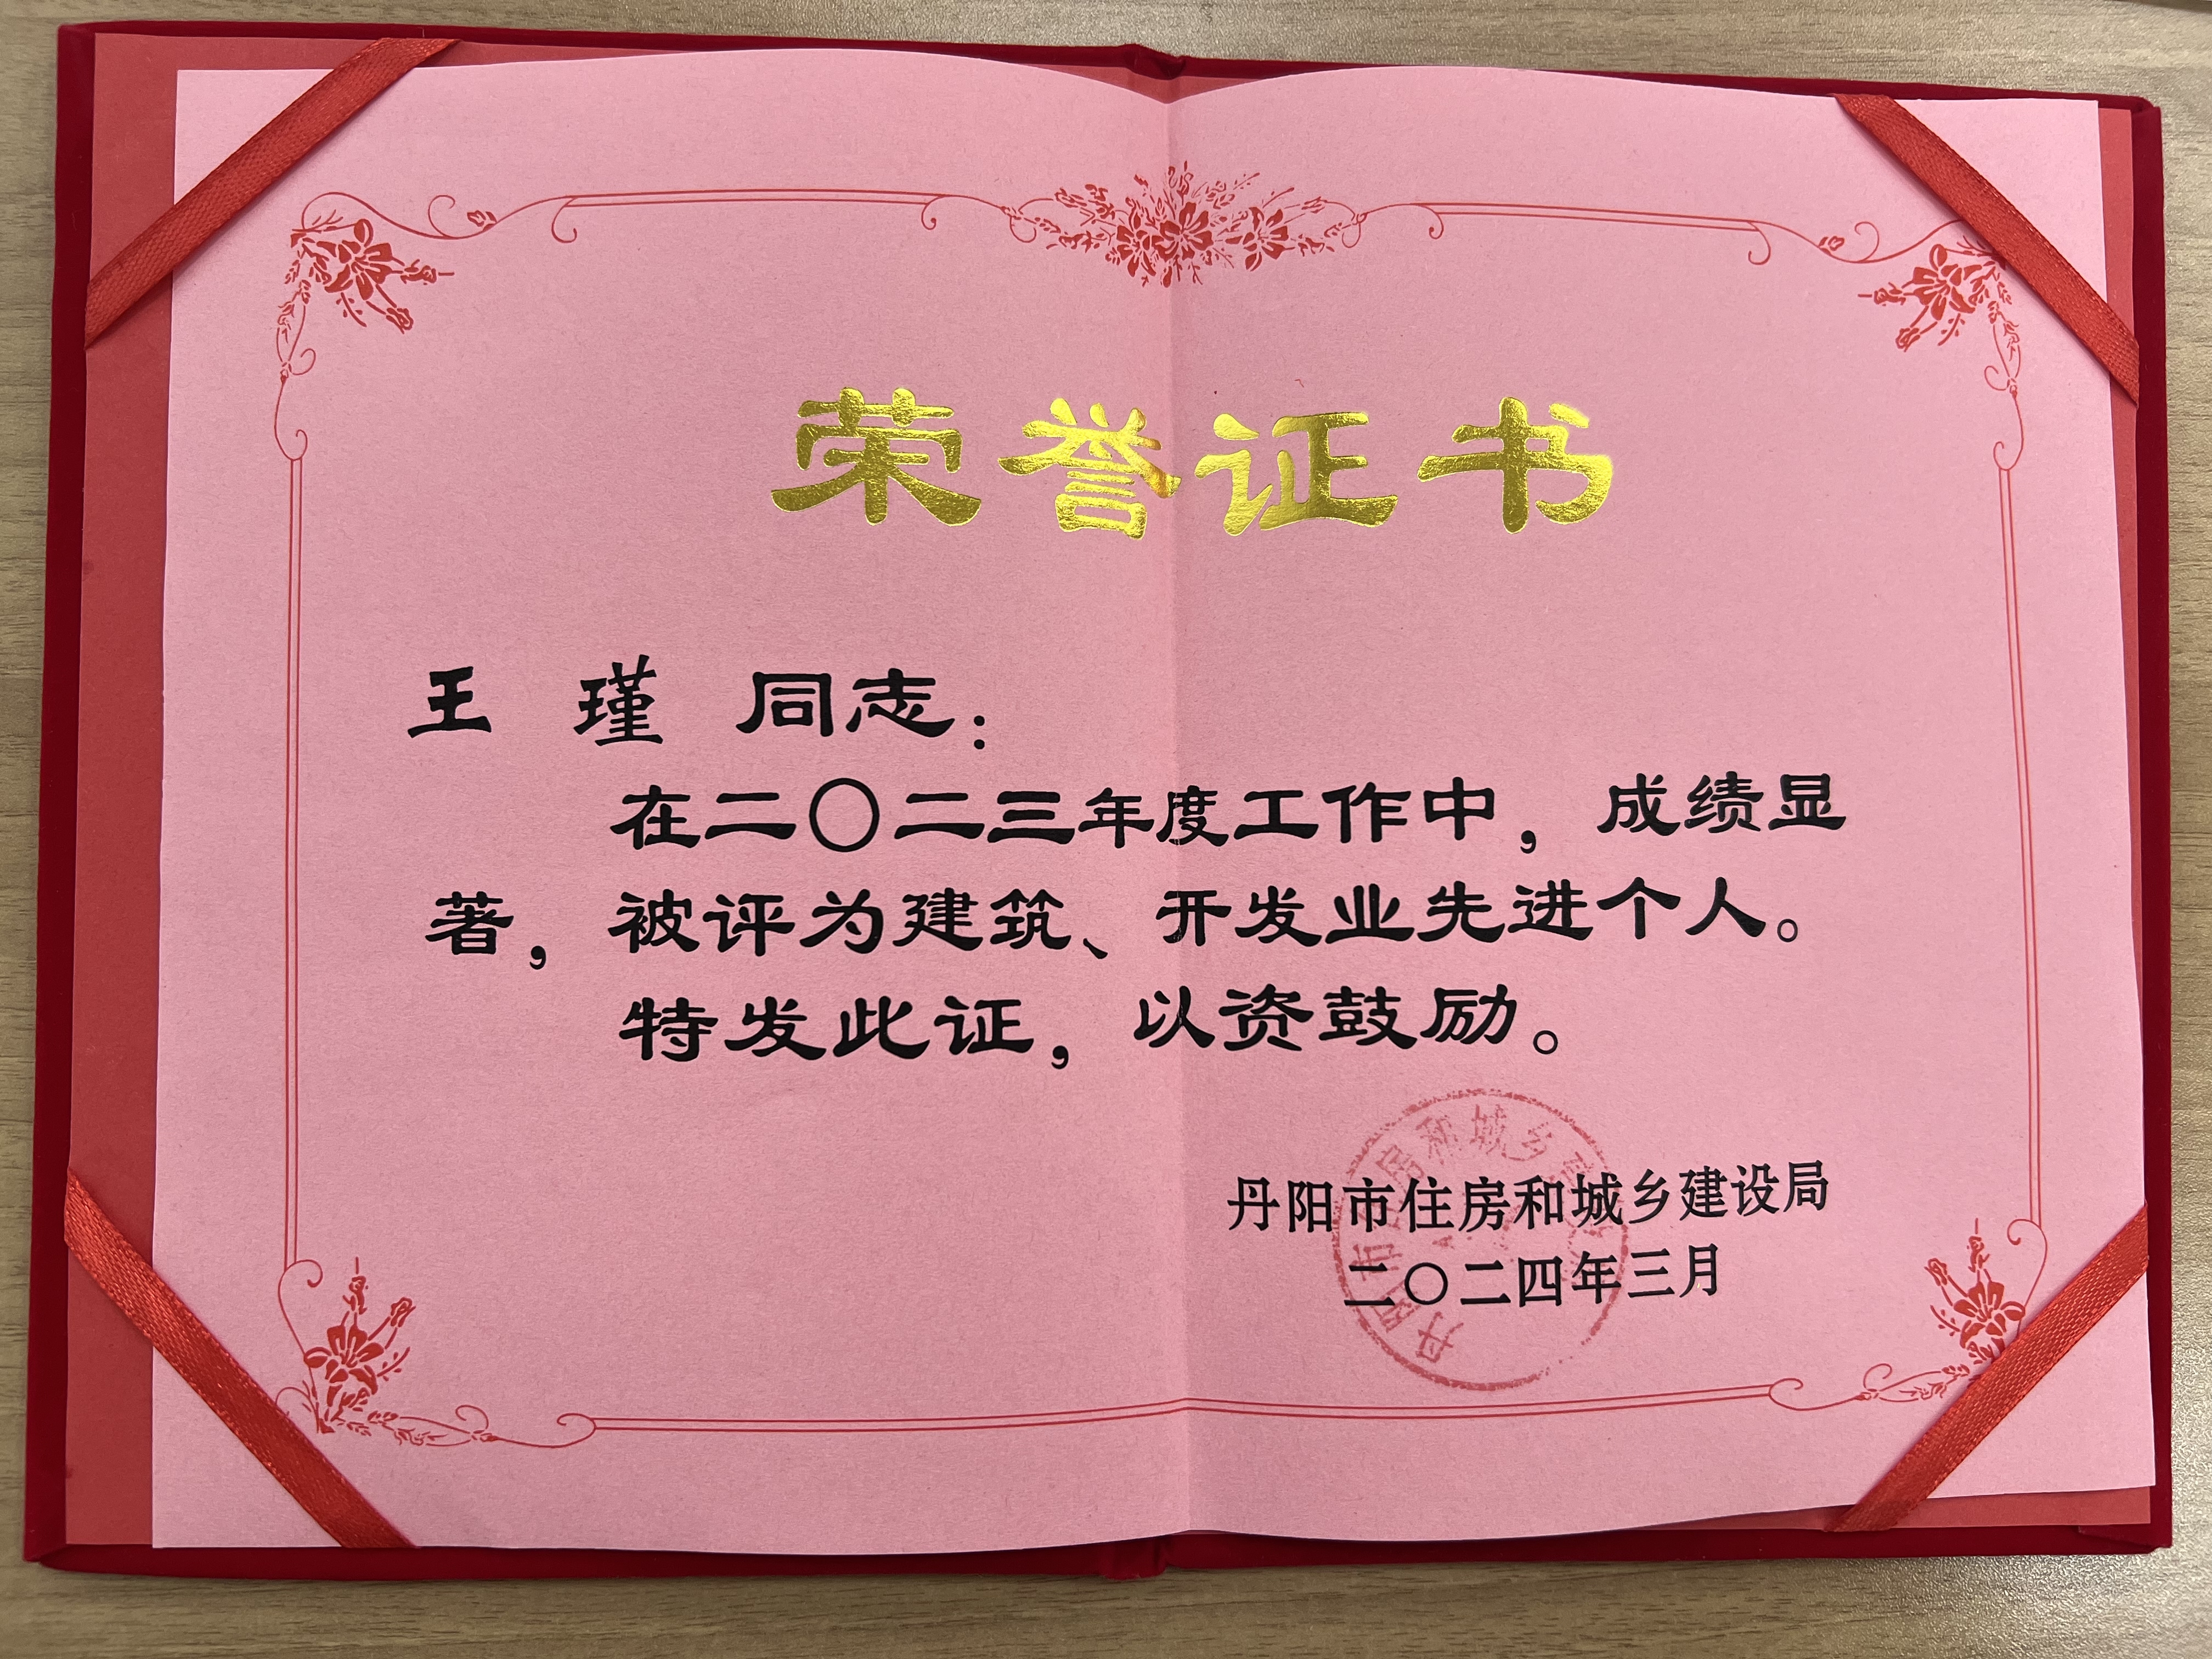 荣誉证书
王 瑾 同志：
在二〇二三年度工作中，成绩显
著，被评为建筑、开发业先进个人。
特发此证，以资鼓励。
丹阳市住房和城乡建设局
二〇二四年三月